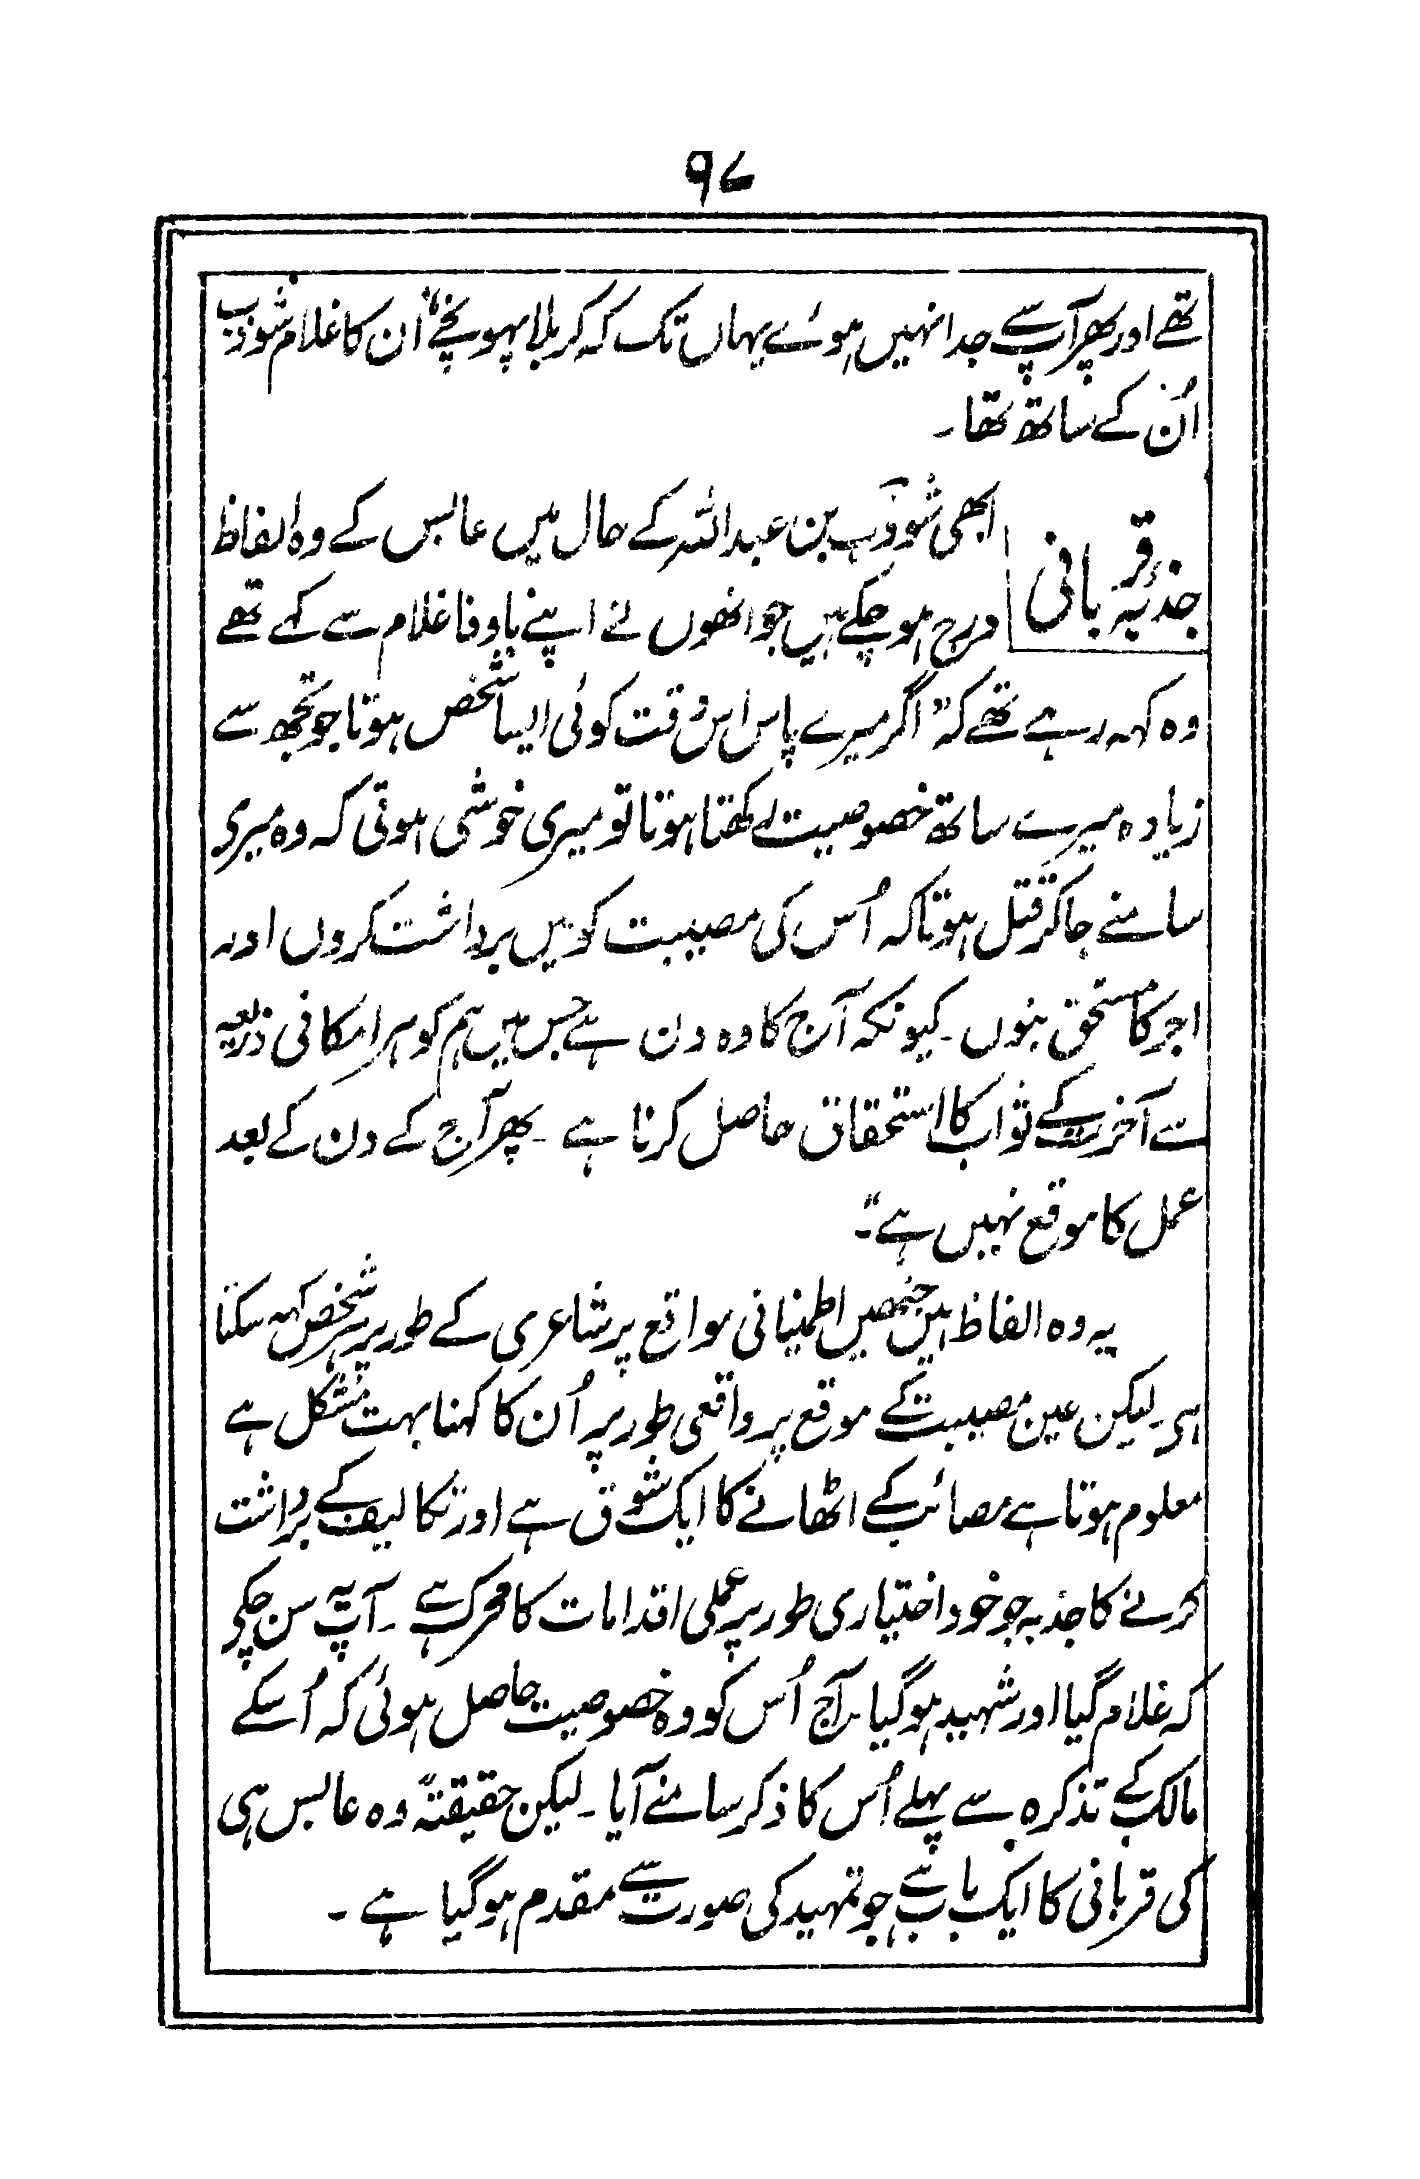 ۹۷
تھے اور پھر آپ سے جدا نہیں ہوئے یہاں تک کہ کربلا پہونچے" ان کا غلام شوذب
اُن کے ساتھ تھا۔
جذبۂ قربانی
ابھی شوذب بن عبداللہ کے حال میں عابس کے وہ الفاظ
درج ہو چکے ہیں جو انھوں نے اپنے باوفا غلام سے کہے تھے
وہ کہہ رہے تھے کہ "اگر میرے پاس اس وقت کوئی ایسا شخص ہوتا جو تجھ سے
زیادہ میرے ساتھ خصوصیت رکھتا ہوتا تو میری خوشی ہوتی کہ وہ میری
سامنے جا کر قتل ہوتا کہ اُس کی مصیبت کو میں برداشت کروں اور
اجر کا مستحق بنوں۔ کیونکہ آج کا وہ دن ہے جس میں ہم کو ہر امکانی ذریعہ
سے آخرت کے ثواب کا استحقاق حاصل کرنا ہے۔ پھر آج کے دن کے بعد
عمل کا موقع نہیں ہے"۔
یہ وہ الفاظ ہیں جنھیں اطمینانی مواقع پر شاعری کے طور پر ہر شخص کہہ سکتا
ہی۔ لیکن عین مصیبت کے موقع پر واقعی طور پر اُن کا کہنا بہت مشکل ہے
معلوم ہوتا ہے مصائب کے اٹھانے کا ایک شوق ہے اور تکالیف کے برداشت
کرنے کا جذبہ جو خود اختیاری طور پر عملی اقدامات کا محرک ہے۔ آپ یہ سن چکے
کہ غلام گیا اور شہید ہو گیا۔ آج اُس کو وہ خصوصیت حاصل ہوئی کہ اُسکے
مالک کے تذکرہ سے پہلے اُس کا ذکر سامنے آیا۔ لیکن حقیقتہً وہ عابس ہی
کی قربانی کا ایک باب ہے جو تمہید کی صورت سے مقدم ہو گیا ہے۔